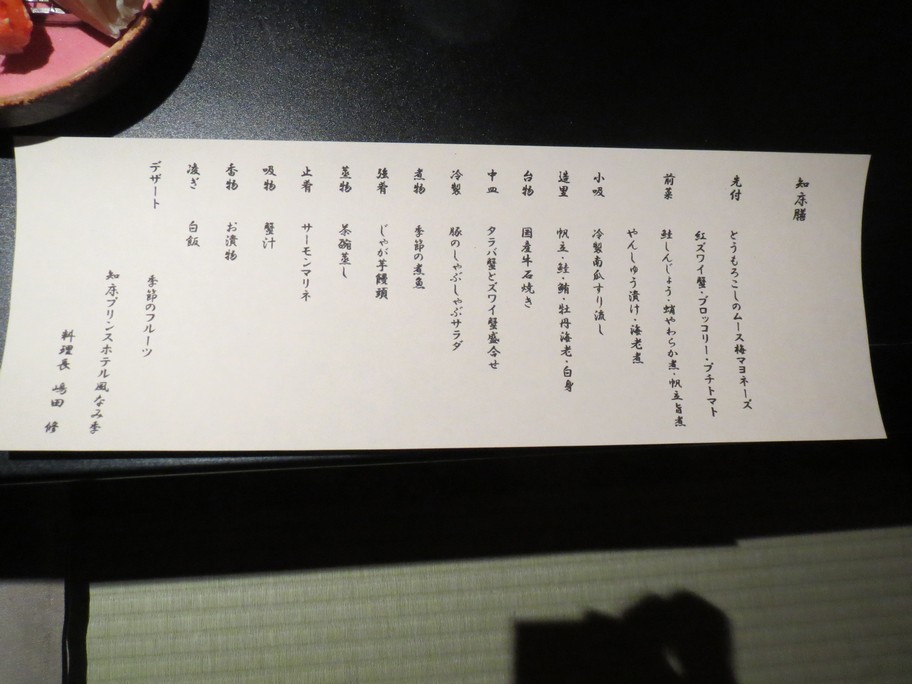 知床膳
先付 とうもろこしのムース梅マヨネーズ
紅ズワイ蟹・ブロッコリー・プチトマト
前菜 鮭しんじょう・蛸やわらか煮・帆立旨煮
やんしゅう漬け・海老煮
小吸 冷製南瓜すり流し
造里 帆立・鮭・鮪・牡丹海老・白身
台物 国産牛石焼き
中皿 タラバ蟹とズワイ蟹盛合せ
冷製 豚のしゃぶしゃぶサラダ
煮物 季節の煮魚
強肴 じゃが芋饅頭
茎物 茶碗蒸し
止肴 サーモンマリネ
吸物 蟹汁
香物 お漬物
凌ぎ 白飯
デザート 季節のフルーツ
知床プリンスホテル風なみ季
料理長 嶋田 修